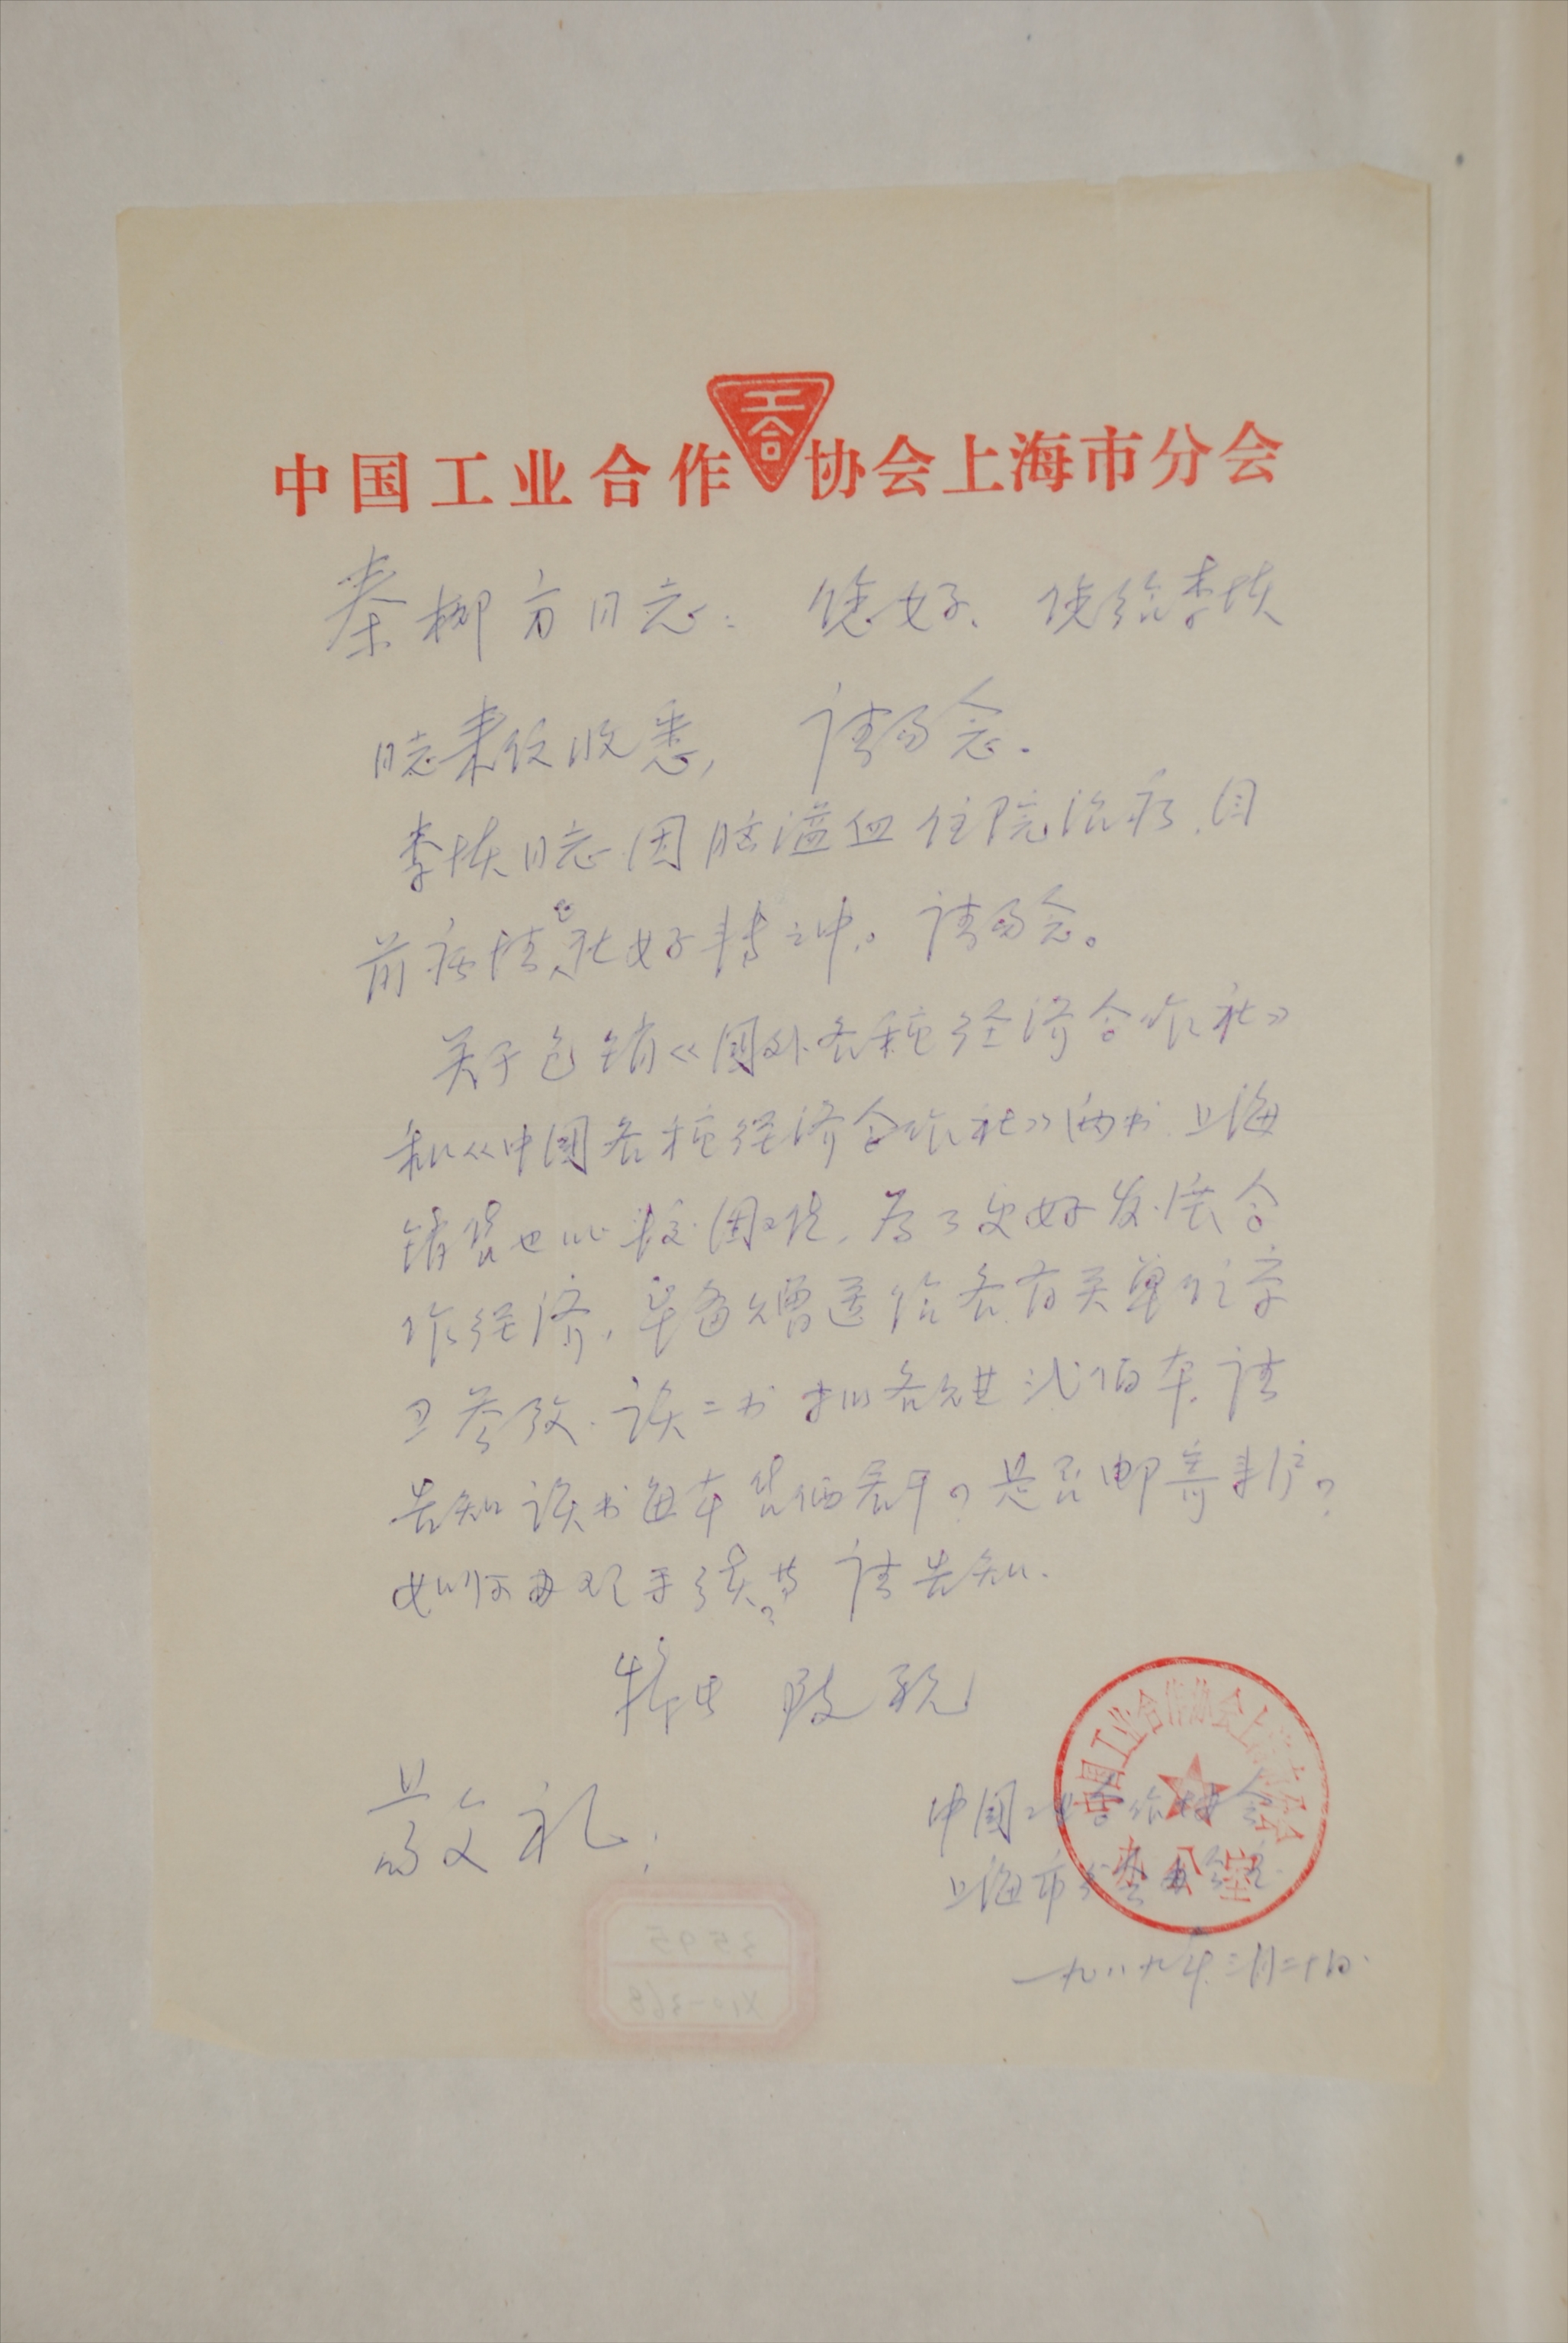 中国工业合作协会上海市分会
工合
秦柳方同志：您好、您给李
同志来信收悉，请勿念.
李 同志因脑溢血住院治疗.目
前病情已在好转之中。请勿念。
关于包销《国外各种经济合作社》
和《中国各种经济合作社》两书.上海
销售也比较困难,为了更好发展合
作经济,准备赠送给各有关单位学
习参考.该二书 拟各先进贰佰本.请
告知该书每本售价若干？是否邮寄来沪？
如何办理手续？等 请告知.
特此 致
敬礼！
中国工业合作协会
上海市分会办公室
中国工业合作协会上海市分会
办公室
一九八九年三月二十日.
3595
X10-368